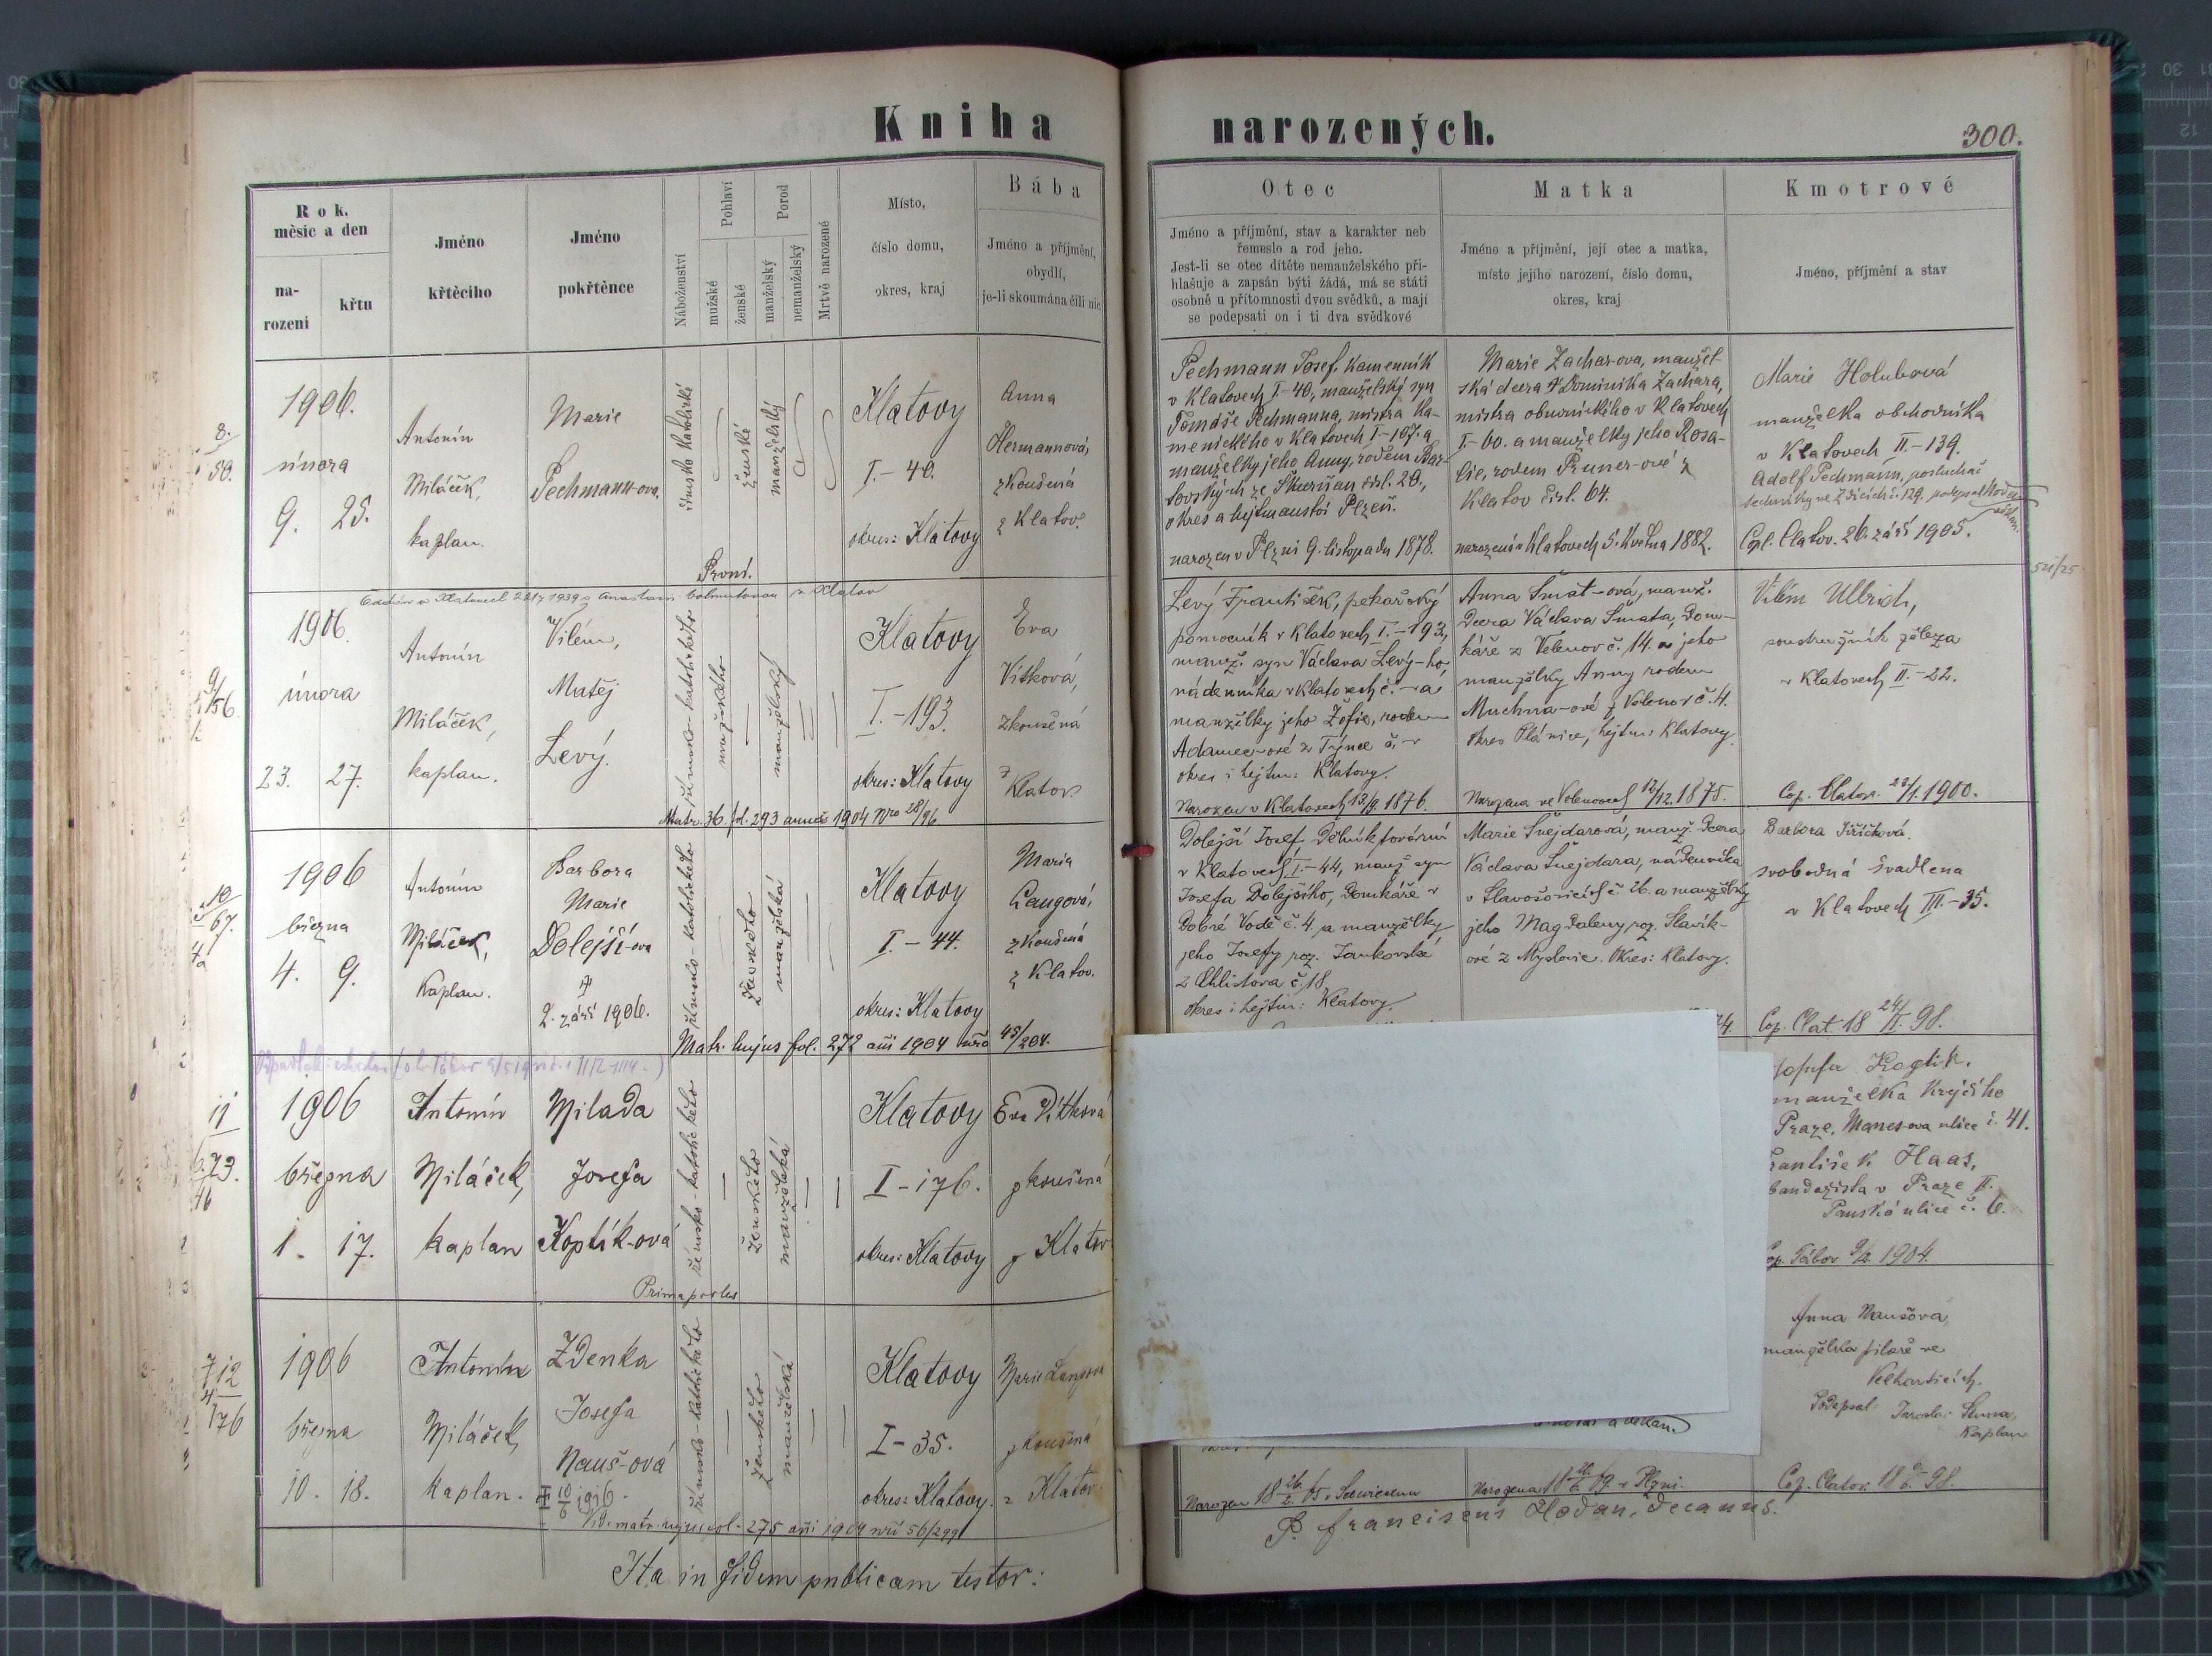 Kniha narozených.
300.
Rok, měsíc a den
na-
rozeni
křtu
Jméno
křtěcího
Jméno
pokřtěnce
Náboženství
Pohlaví
mužské
ženské
Porod
manželský
nemanželský
Mrtvě narozené
Místo,
číslo domu,
okres, kraj
Bába
Jméno a příjmění,
obydlí,
je-li skoumána čili nic
Otec
Jméno a příjmění, stav a karakter neb
řemeslo a rod jeho.
Jest-li se otec dítěte nemanželského při-
hlašuje a zapsán býti žádá, má se státi
osobně u přítomnosti dvou svědků, a mají
se podepsati on i ti dva svědkové
Matka
Jméno a příjmění, její otec a matka,
místo jejího narození, číslo domu,
okres, kraj
Kmotrové
Jméno, příjmění a stav
8.
50.
1906.
února
9. 25.
Antonín
Miláček,
kaplan.
Marie
Pechmann-ova.
římsko katolické
ženské
manželský
Klatovy
I.-40.
okres: Klatovy
Anna
Hermannová,
zkoušená
z Klatov.
První.
Pechmann Josef, kamenník
v Klatovech I-40, manželský syn
Tomáše Pechmanna, mistra ka-
menického v Klatovech I-107. a
manželky jeho Anny, rodem Bar-
tovských ze Skvrňan čísl. 20.,
okres a hejtmanství Plzeň.
narozen v Plzni 9. listopadu 1878.
Marie Zachar-ova, manžel-
ská dcera Dominika Zachara,
mistra obuvnického v Klatovech
I-60. a manželky jeho Rosa-
lie, rodem Pruner-ové z
Klatov čísl. 64.
narozená v Klatovech 5. května 1882.
Marie Holubová
manželka obchodníka
v Klatovech II-139.
Adolf Pechmann, posluchač
techniky ve Zdicích č. 129. podepsal Hodan
Cop. Clatov. 26. září 1905.
1906.
února
23. 27.
Antonín
Miláček,
kaplan.
Vilém,
Matěj
Levý.
římsko-katolického
mužského
manželský
Klatovy
I.-193.
okres: Klatovy
Eva
Vítková,
zkoušená
z
Klatov
Matr. 36. fol. 293 anni 1904 Nro 28/96
Levý František, pekařský
pomocník v Klatovech I.-193,
manž. syn Václava Levý-ho
nádenníka v Klatovech č. - a
manželky jeho Žofie, rodem
Adamec-ové z Týnce č. -
okres i hejtm: Klatovy.
Narozen v Klatovech 13/9. 1876.
Anna Šmat-ová, manž.
dcera Václava Šmata, dom-
káře z Velenov č. 14. a jeho
manželky Anny rodem
Muchna-ové z Velenov č. 4.
okres Plánice, hejtm: Klatovy.
Narozena ve Velenovech 12/12. 1875.
Vilém Ullrich,
soustružník železa
v Klatovech II.-22.
Cop. Clatov. 23/1. 1900.
10
67.
1906
března
4. 9.
Antonín
Miláček,
Kaplan.
Barbora
Marie
Dolejší-ova
2. září 1906.
římsko-katolického
ženského
manželská
Klatovy
I.-44.
okres: Klatovy
Maria
Langová,
zkoušená
z Klatov.
Matr. hujus fol. 272 ani 1904 nro 45/204.
Dolejší Josef dělník tovární
v Klatovech I.-44, manž. syn
Josefa Dolejšího, domkáře v
Dobré Vodě č. 4. a manželky
jeho Josefy roz. Jankovské
z Chlistova č. 18
okres i hejtm: Klatovy.
Marie Šnejdarová, manž. dcera
Václava Šnejdara, nádenníka
v Slavošovicích č. 26. a manželky
jeho Magdaleny roz. Slavík-
ové z Myslovic. Okres: Klatovy.
74.
Barbora Jiřičková.
svobodná švadlena
v Klatovech III.-35.
Cop. Clat: 18 24/II. 98.
11
73.
1906
března
1. 17.
Antonín
Miláček,
kaplan
Milada
Josefa
Koptík-ová
římsko-katolického
ženského
manželská
Klatovy
I-176.
okres: Klatovy
Eva Vítková
zkoušená
z Klatov
Prima proles
Koptik.
manželka krejčího
Praze, Manesova ulice č. 41.
František Haas,
bandažista v Praze II.
Panská ulice č. 6.
Cop. Tábor 9/2. 1904.
12
176
1906
března
10. 18.
Antonín
Miláček,
kaplan.
Zdenka
Josefa
Nauš-ová
10/6 1916.
římsko-katolického
ženského
manželská
Klatovy
I-35.
okres: Klatovy.
Marie Langová
zkoušená
z Klatov.
Vid. matr. hujus fol. 275 ani 1904 nro 56/299
Anna Naušová,
manželka pilaře ve
Velharticích.
Podepsal
Kaplan
Cop. Clatov. 18 98.
Ita in fidem publicam testor:
P. Franciscus Hodan, decanus.